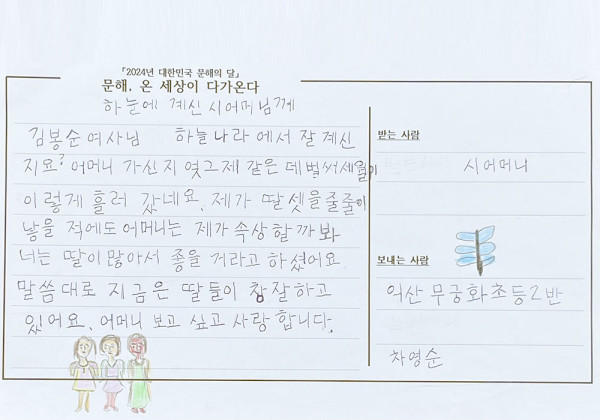 「2024년 대한민국 문해의 달」
문해, 온 세상이 다가온다
하눈에 계신 시어머님께
김봉순여사님 하늘나라에서 잘계신
지요? 어머니 가신지 엊그제 같은데벌써세월이
이렇게 흘러 갔네요. 제가 딸셋을줄줄이
낳을 적에도어머니는 제가속상할까봐
너는 딸이많아서 좋을 거라고 하셨어요
말씀대로 지금은 딸들이 참잘하고
있어요. 어머니 보고 싶고 사랑합니다.
받는 사람
시어머니
보내는 사람
익산 무궁화초등2반
차영순